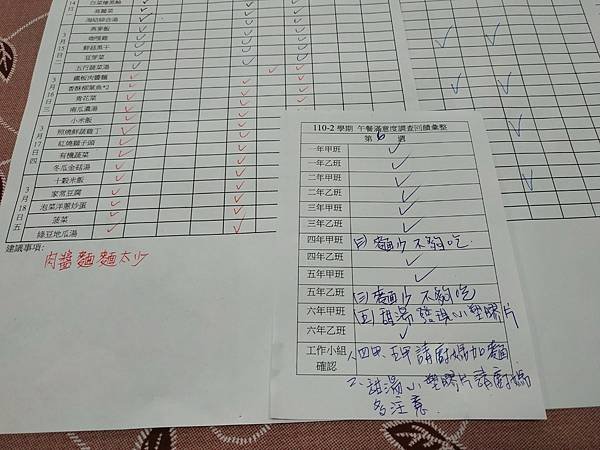 14
日
一
白菜燴黑輪
高麗菜
海結綜合湯
3
月
15
日
二
燕麥飯
咖哩雞
鮮菇黑干
豆芽菜
五行蔬菜湯
3
月
16
日
三
鐵板肉醬麵
香酥柳葉魚*2
青花菜
南瓜濃湯
3
月
17
日
四
小米飯
照燒鮮蔬雞丁
紅燒獅子頭
有機蔬菜
冬瓜金菇湯
3
月
18
日
五
十穀米飯
家常豆腐
泡菜洋蔥炒蛋
菠菜
綠豆地瓜湯
建議事項:
肉醬麵麵太少
110-2 學期 午餐滿意度調查回饋彙整
第 6 週
一年甲班
一年乙班
二年甲班
二年乙班
三年甲班
三年乙班
四年甲班 (三)麵少不夠吃.
四年乙班
五年甲班
五年乙班 (三)麵少不夠吃
六年甲班 (五)甜湯發現小塑膠片
六年乙班
工作小組
確認
1.四甲、五甲請廚媽加麵
2.甜湯小塑膠片請廚媽
多注意.